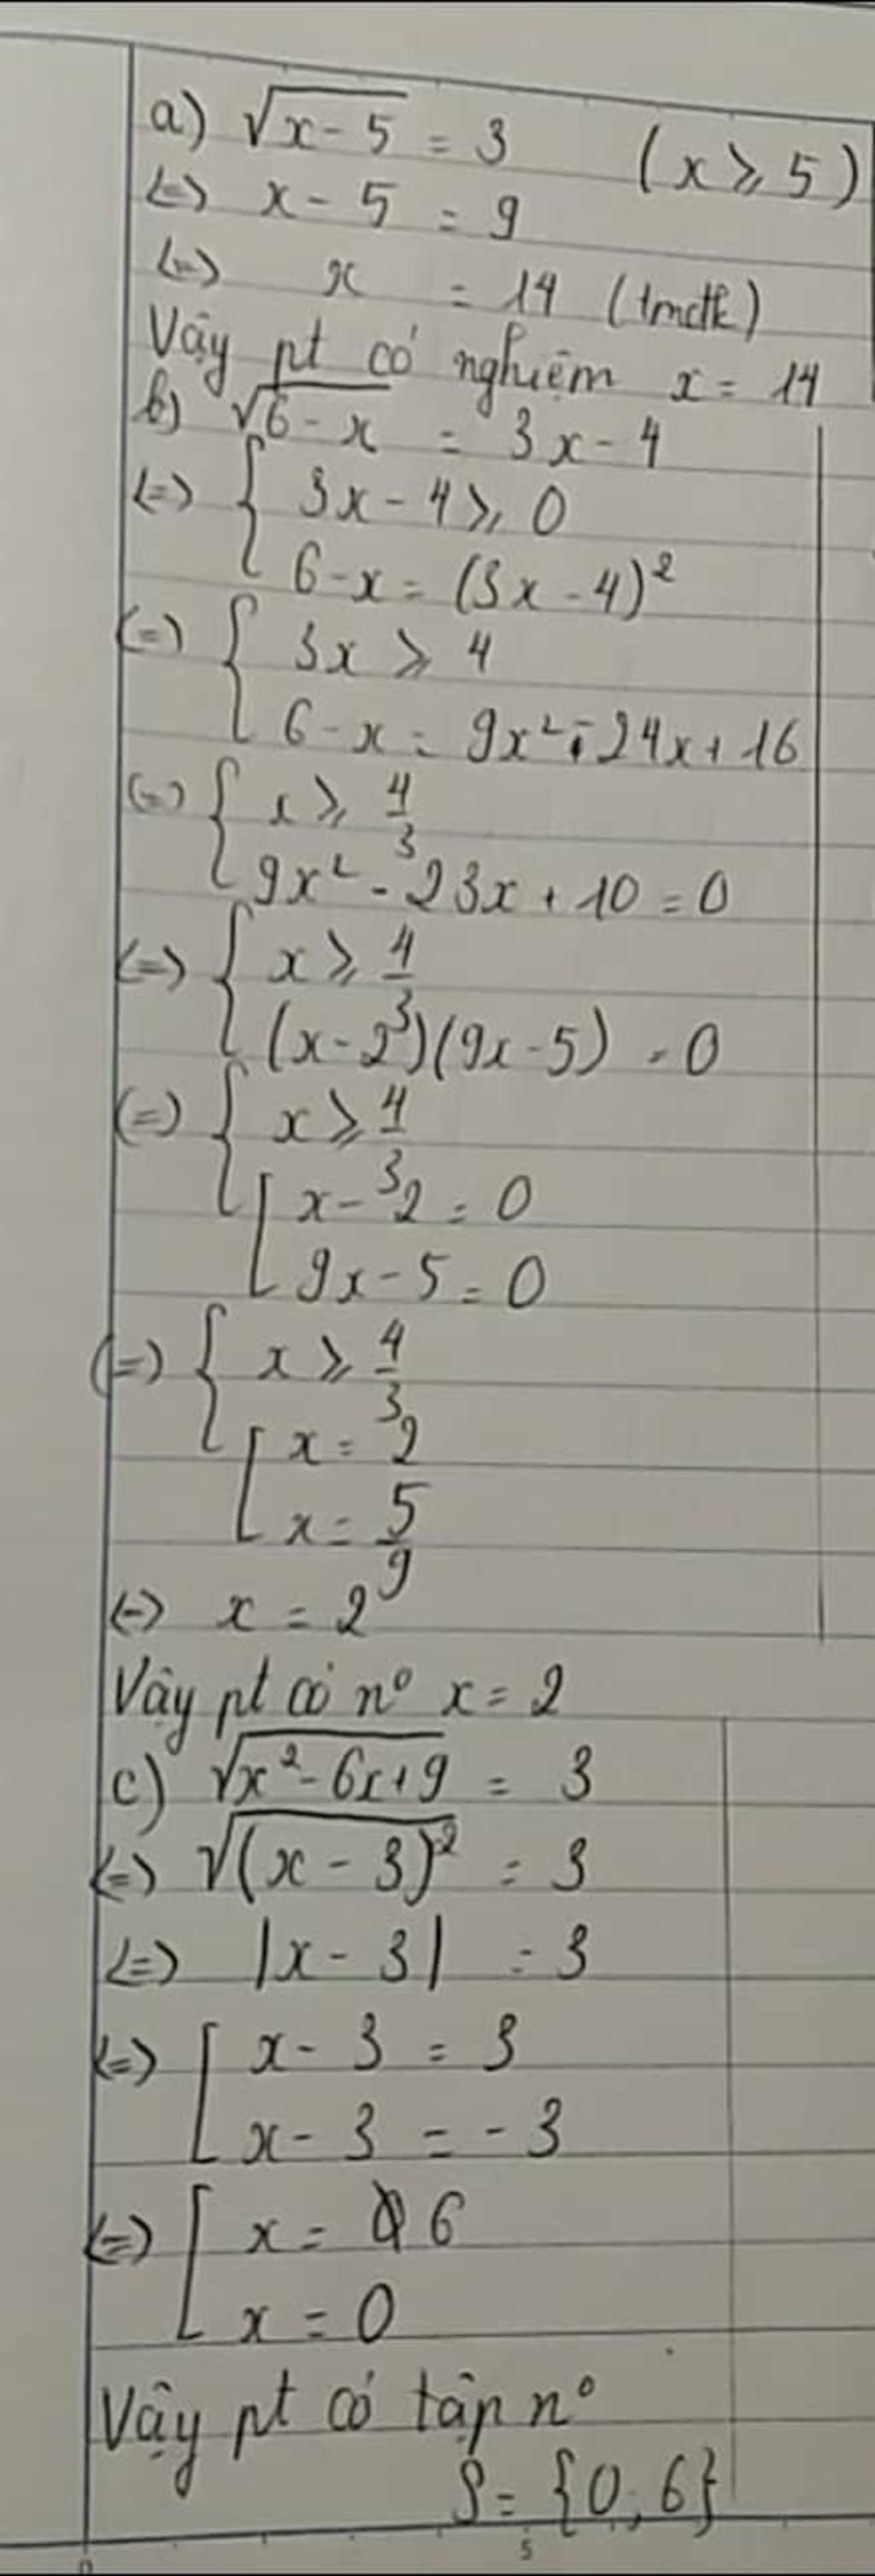 a) √(x - 5) = 3 (x ⩾ 5)
<=> x - 5 = 9
<=> x = 14 (tmđk)
Vậy pt có nghiệm x = 14
b) √(6 - x) = 3x - 4
<=> { 3x - 4 ⩾ 0
6 - x = (3x - 4)²
<=> { 3x ⩾ 4
6 - x = 9x² - 24x + 16
<=> { x ⩾ 4/3
9x² - 23x + 10 = 0
<=> { x ⩾ 4/3
(x - 2)(9x - 5) = 0
<=> { x ⩾ 4/3
[ x - 2 = 0
9x - 5 = 0
<=> { x ⩾ 4/3
[ x = 2
x = 5/9
<=> x = 2
Vậy pt có nº x = 2
c) √(x² - 6x + 9) = 3
<=> √((x - 3)²) = 3
<=> |x - 3| = 3
<=> [ x - 3 = 3
x - 3 = - 3
<=> [ x = 6
x = 0
Vậy pt có tập nº
S = {0, 6}
0 5